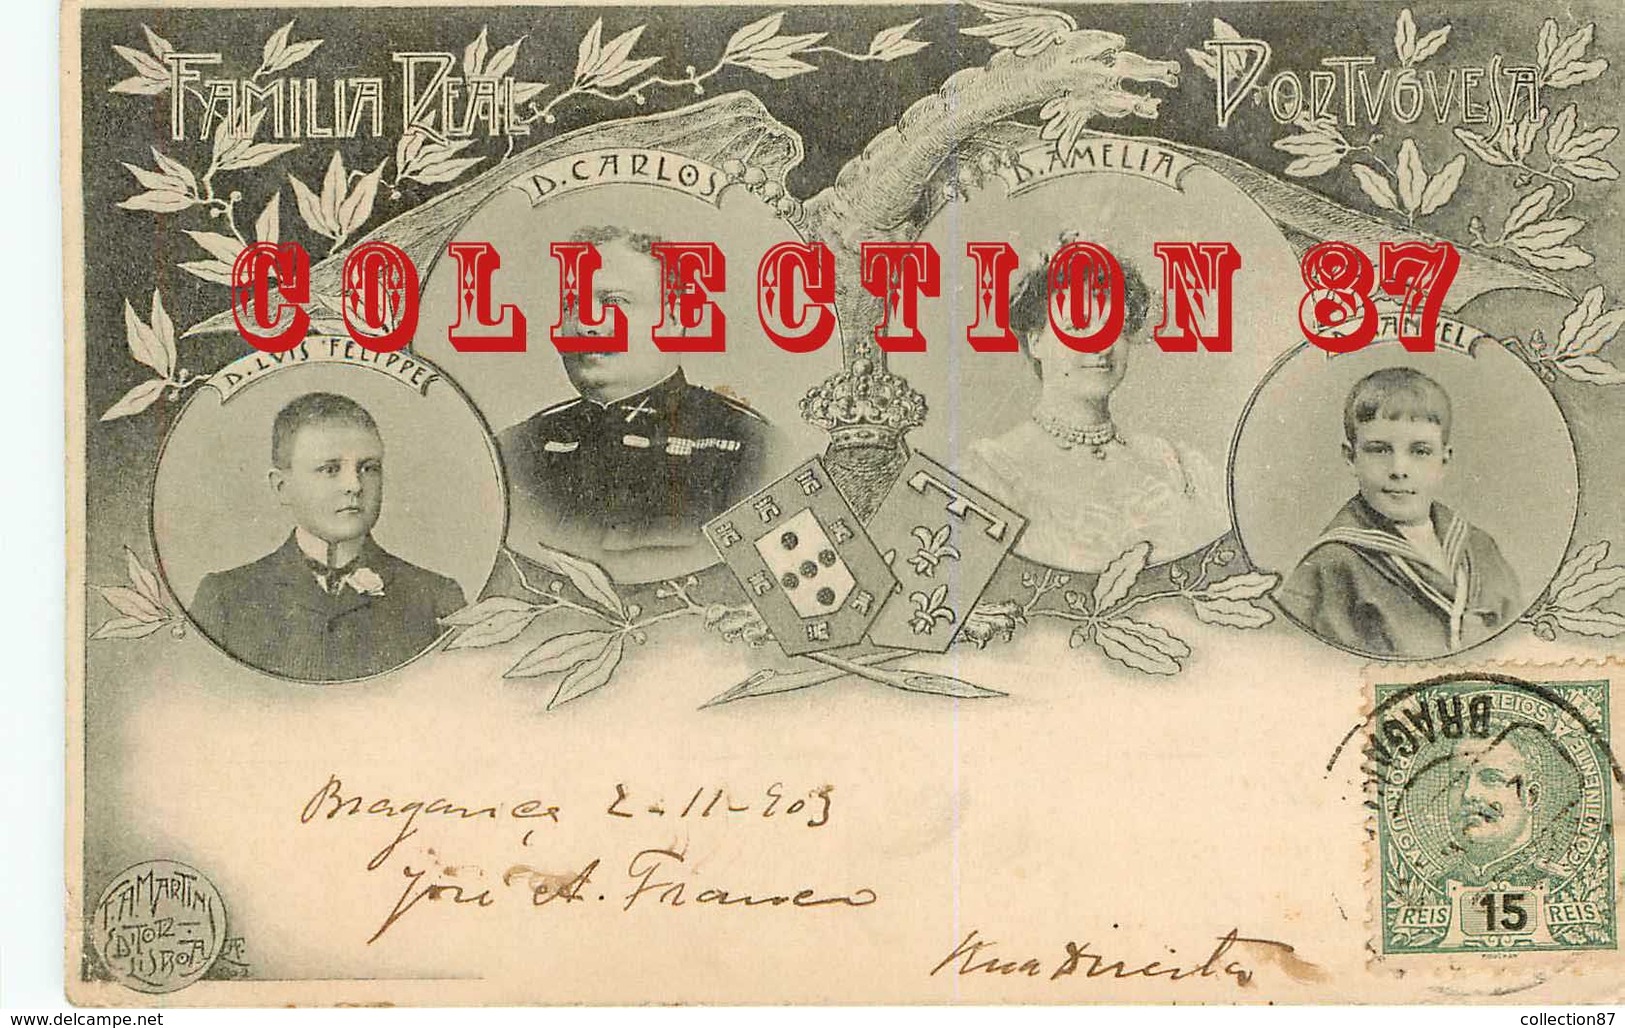 FAMILIA REAL PORTVGVESA
D. CARLOS
D. AMELIA
COLLECTION 87
D. LVIS FELIPPE
Bragança 2-11-903
José A. Franco
Rua Direita
F. A. MARTINS
EDITOR
LISBOA
BRAGANÇA
CORREIOS
PORTUGAL CONTINENTE A
REIS 15 REIS
www.delcampe.net
collection87